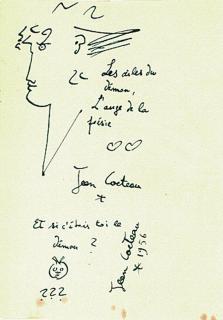 Les ailes du
démon,
L'ange de la
poésie
Jean Cocteau
*
Et si c'était toi le
démon ?
Jean Cocteau
* 1956
???